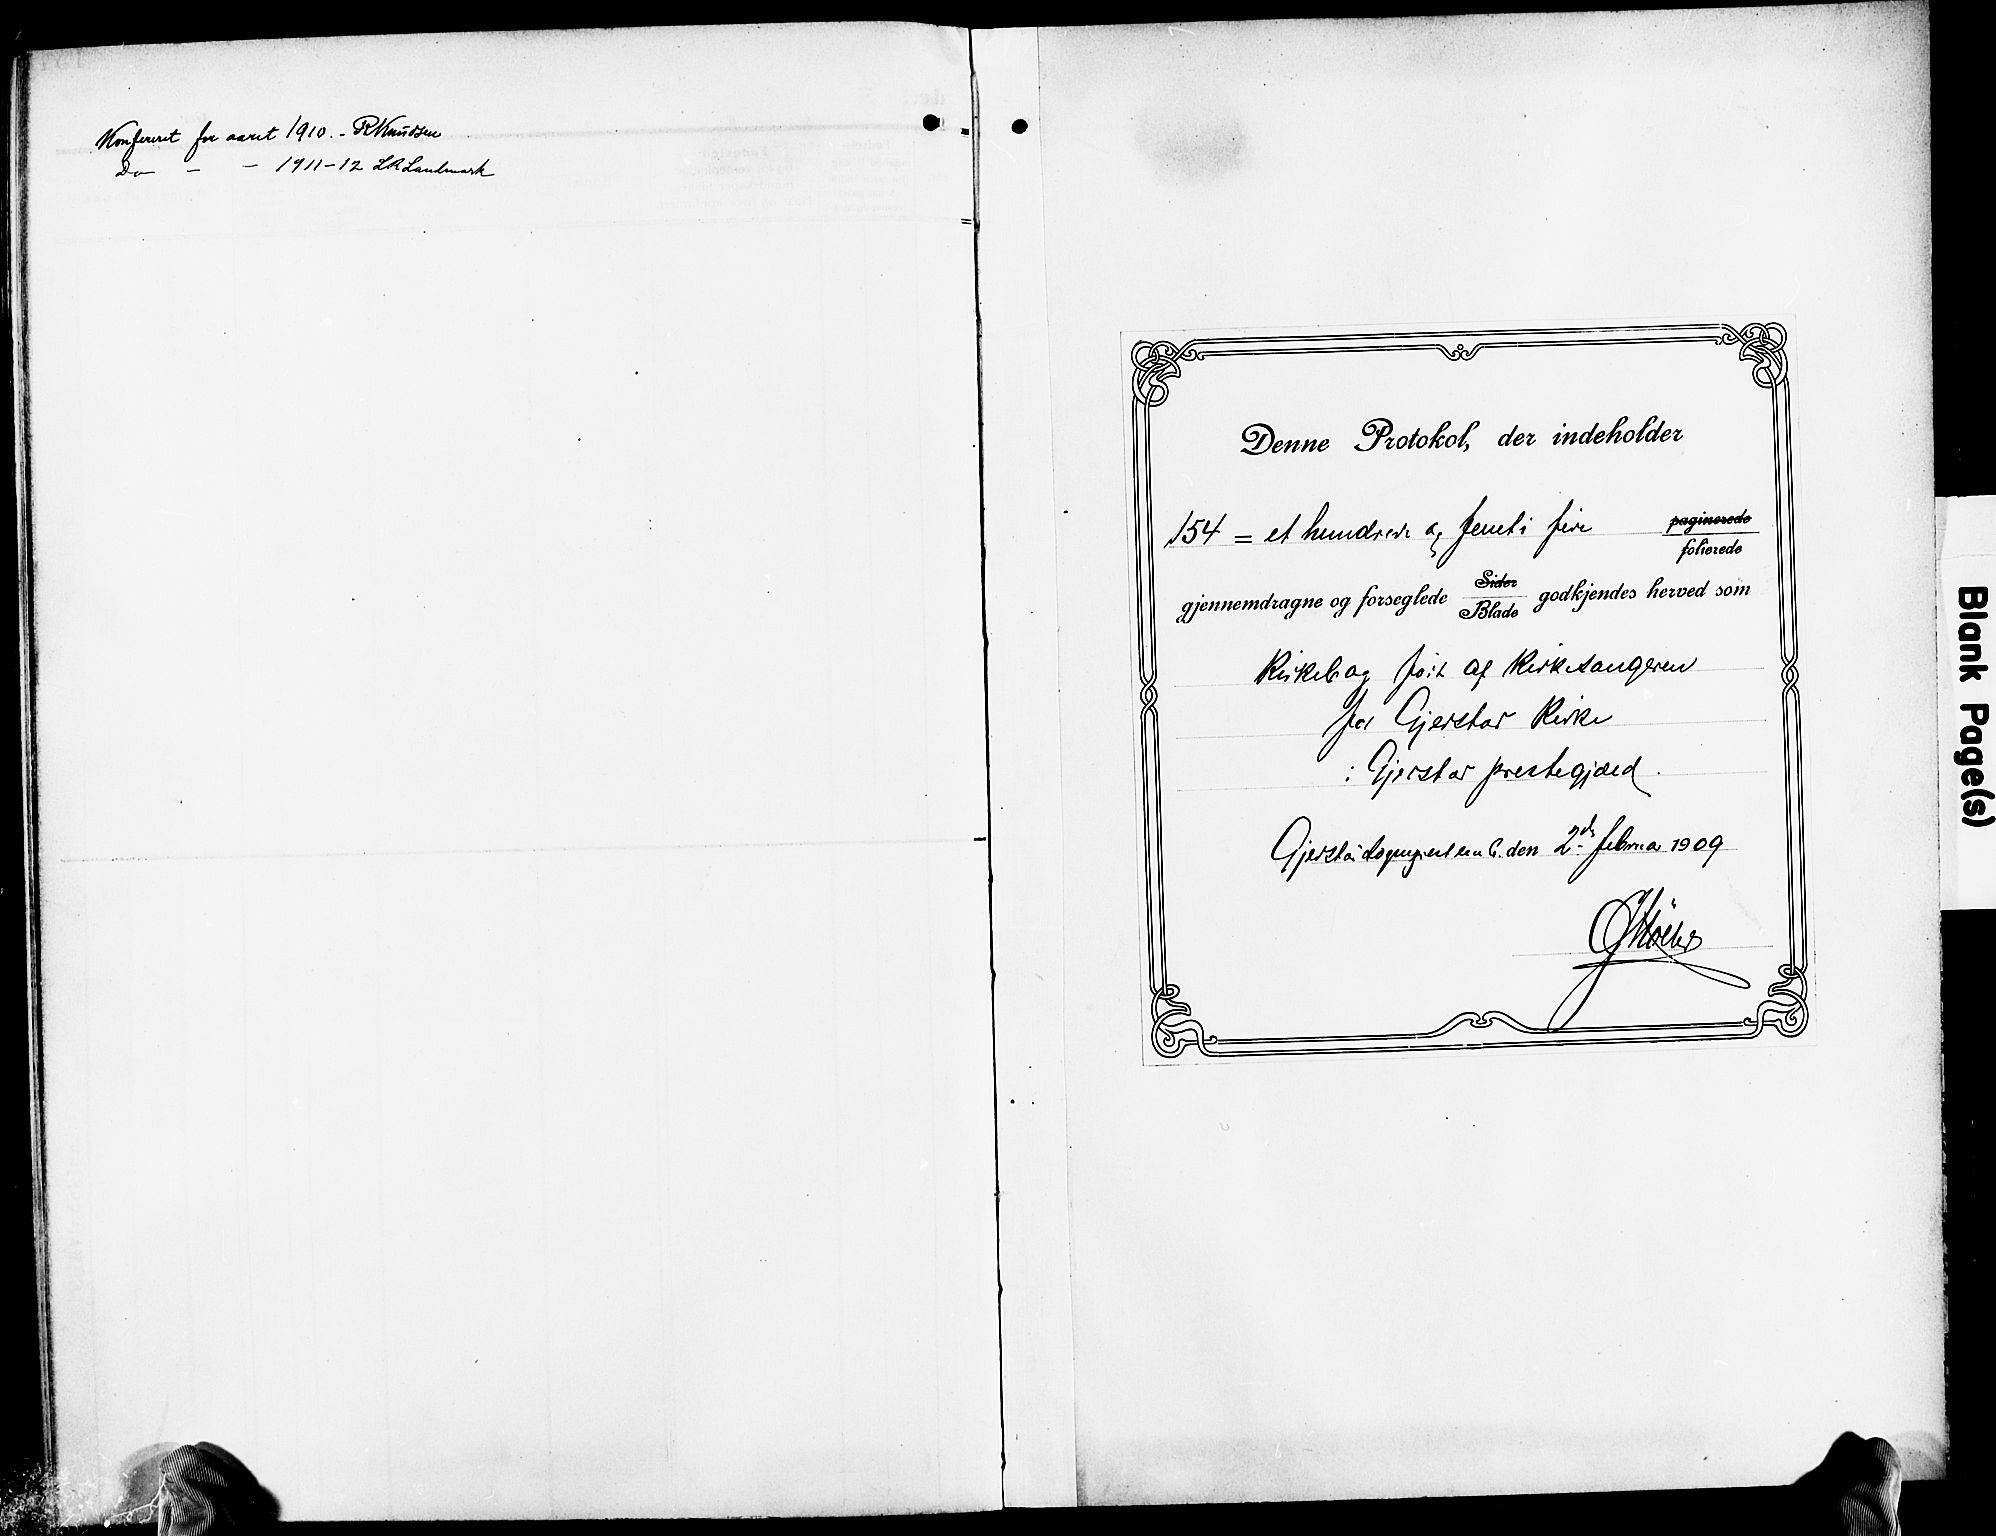 Konfereret for aaret 1910. - R Knudsen
Do - - 1911-12 LR Landmark
Denne Protokol, der indeholder
154 = et hundrede og femti fire paginerede
folierede
gjennemdragne og forseglede Sider
Blade godkjendes herved som
Kirkebog ført af Kirkesangeren
for Gjerstad Kirke
i Gjerstad prestegjæld.
den 2de februar 1909
Blank Page(s)